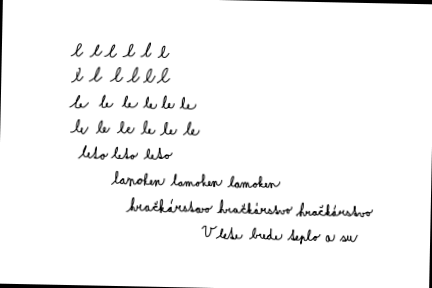 l l l l l l
l l l l l l
le le le le le le
le le le le le le
leto leto leto
lamohen lamohen
hračkárstvo hračkárstvo hračkárstvo
V lete bude teplo a su